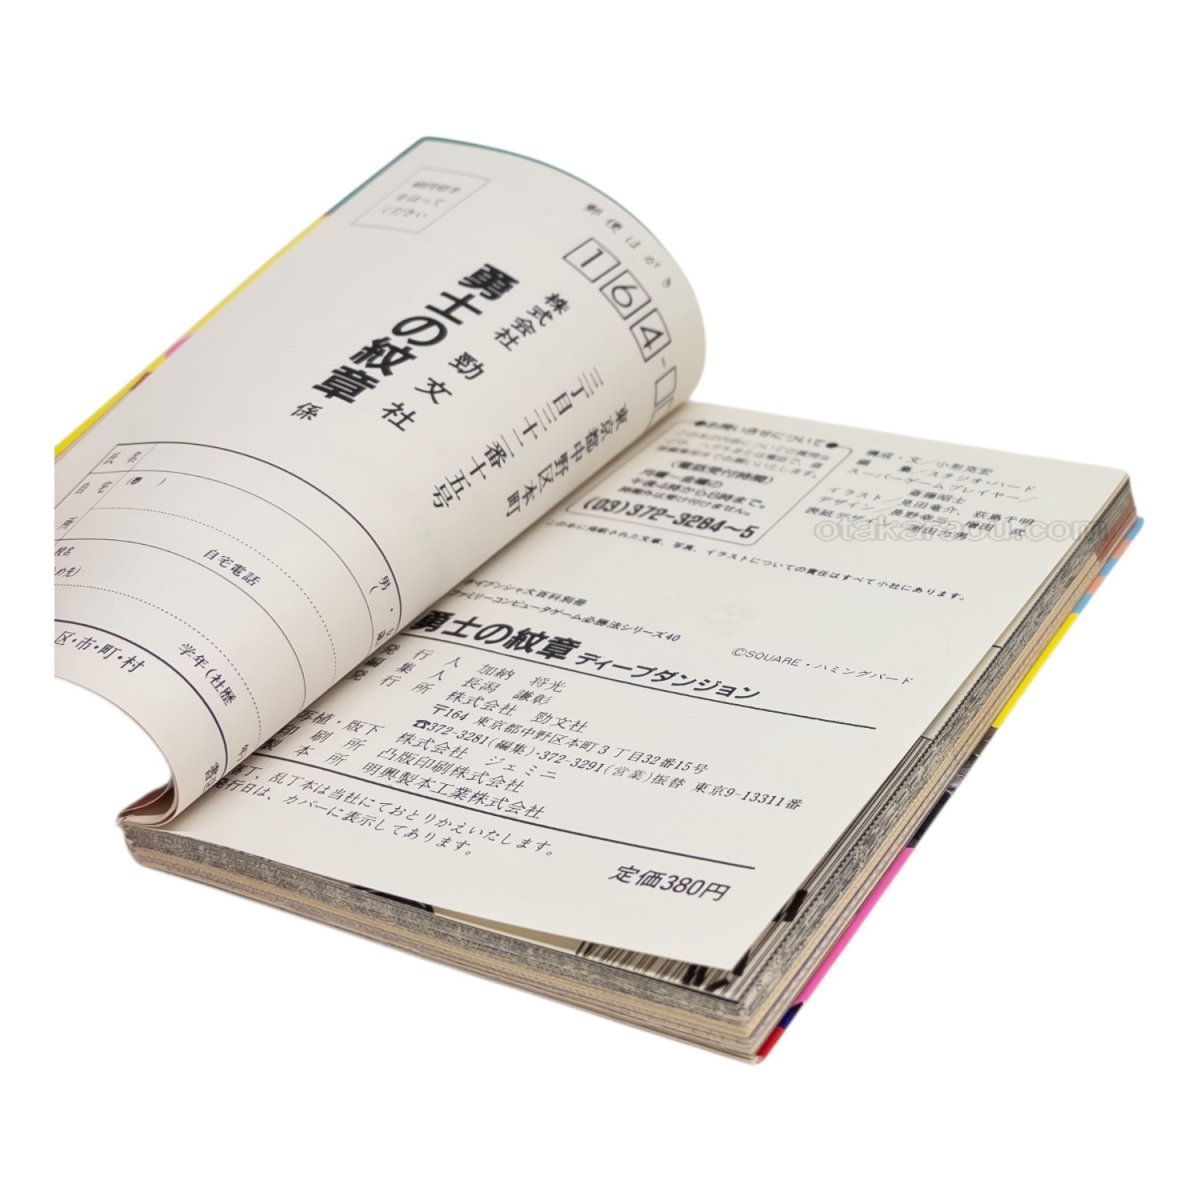 郵便はがき
164-
東京都中野区本町
三丁目三十二番十五号
株式会社 勁文社
勇士の紋章 係
をはって
ください
氏名
自宅
自宅電話
男・
学年(社歴
区・市・町・村
●お問い合せについて●
(電話受付時間)
月曜~金曜の
午後4時から6時まで。
(03)372-3284~5
構成・文/小形克宏
編 集/スタジオ・ハード
スーパーゲームプレイヤー/
斎藤昭士
イラスト/見田竜介、荻島千明
デザイン/長野幸子、増田 武
表紙デザイン/
この本に掲載された文章、写真、イラストについての責任はすべて小社にあります。
ケイブンシャ大百科別冊
ファミリーコンピュータゲーム必勝法シリーズ40
勇士の紋章 ディープダンジョン
©SQUARE・ハミングバード
発行人 加納 将光
編集人 長潟 謙彰
発行所 株式会社 勁文社
〒164 東京都中野区本町3丁目32番15号
☎372-3281(編集)・372-3291(営業)振替 東京9-13311番
写植・版下 株式会社 ジェミニ
印刷所 凸版印刷株式会社
製本所 明興製本工業株式会社
落丁、乱丁本は当社にておとりかえいたします。
発行日は、カバーに表示してあります。
定価380円
otakaraou.com